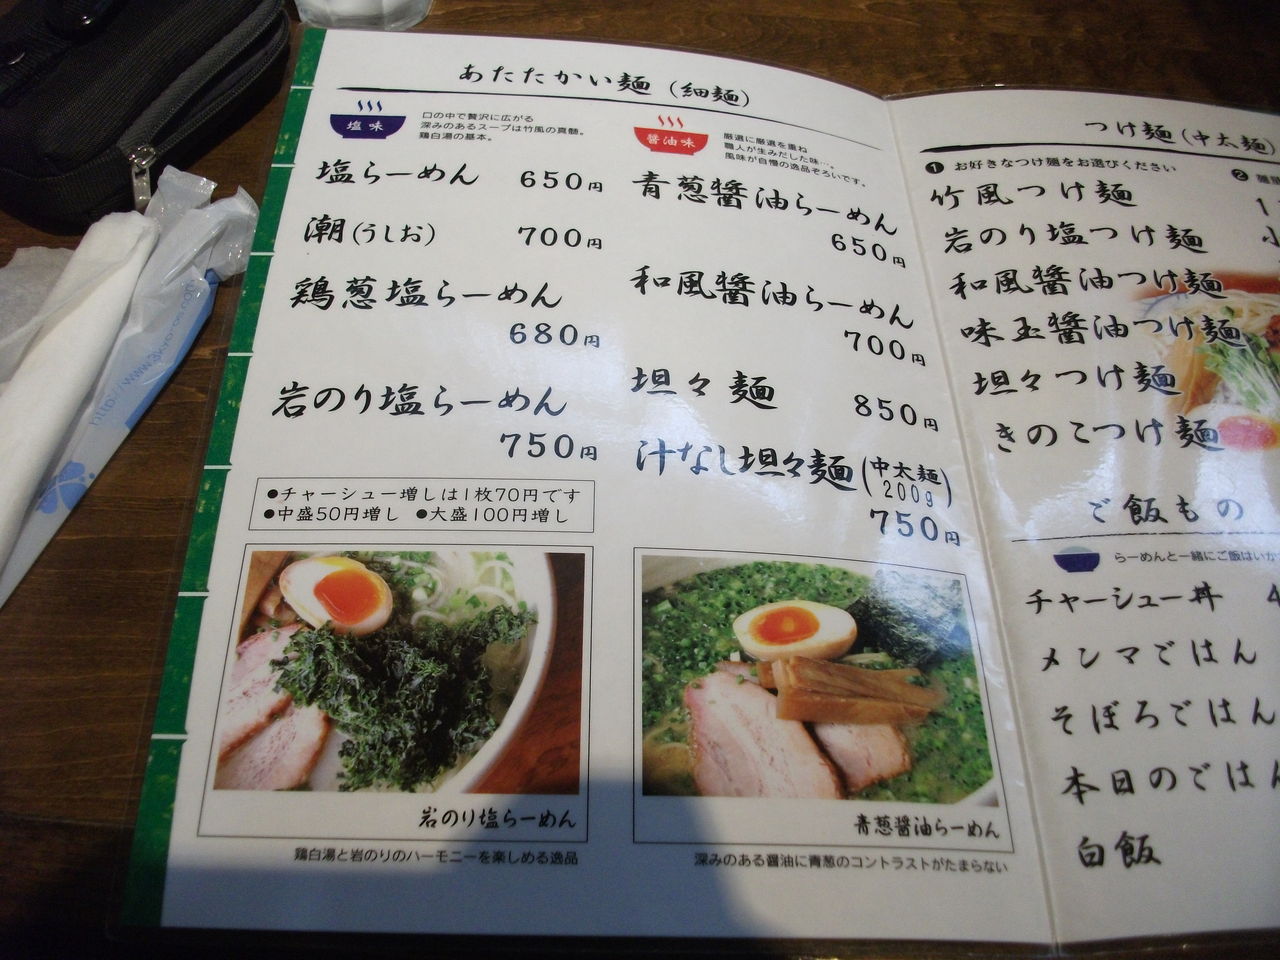 あたたかい麺（細麺）
塩味
口の中で贅沢に広がる
深みのあるスープは竹風の真髄。
鶏白湯の基本。
塩らーめん 650円
潮(うしお) 700円
鶏葱塩らーめん
680円
岩のり塩らーめん
750円
●チャーシュー増しは1枚70円です
●中盛50円増し ●大盛100円増し
岩のり塩らーめん
鶏白湯と岩のりのハーモニーを楽しめる逸品
醤油味
厳選に厳選を重ね
職人が生みだした味…。
風味が自慢の逸品ぞろいです。
青葱醤油らーめん
650円
和風醤油らーめん
700円
坦々麺 850円
汁なし坦々麺(中太麺 200g)
750円
青葱醤油らーめん
深みのある醤油に青葱のコントラストがたまらない
つけ麺（中太麺）
❶ お好きなつけ麺をお選びください
❷
竹風つけ麺
岩のり塩つけ麺
和風醤油つけ麺
味玉醤油つけ麺
坦々つけ麺
きのこつけ麺
ご飯もの
らーめんと一緒にご飯はいか
チャーシュー丼
メンマごはん
そぼろごはん
本日のごはん
白飯